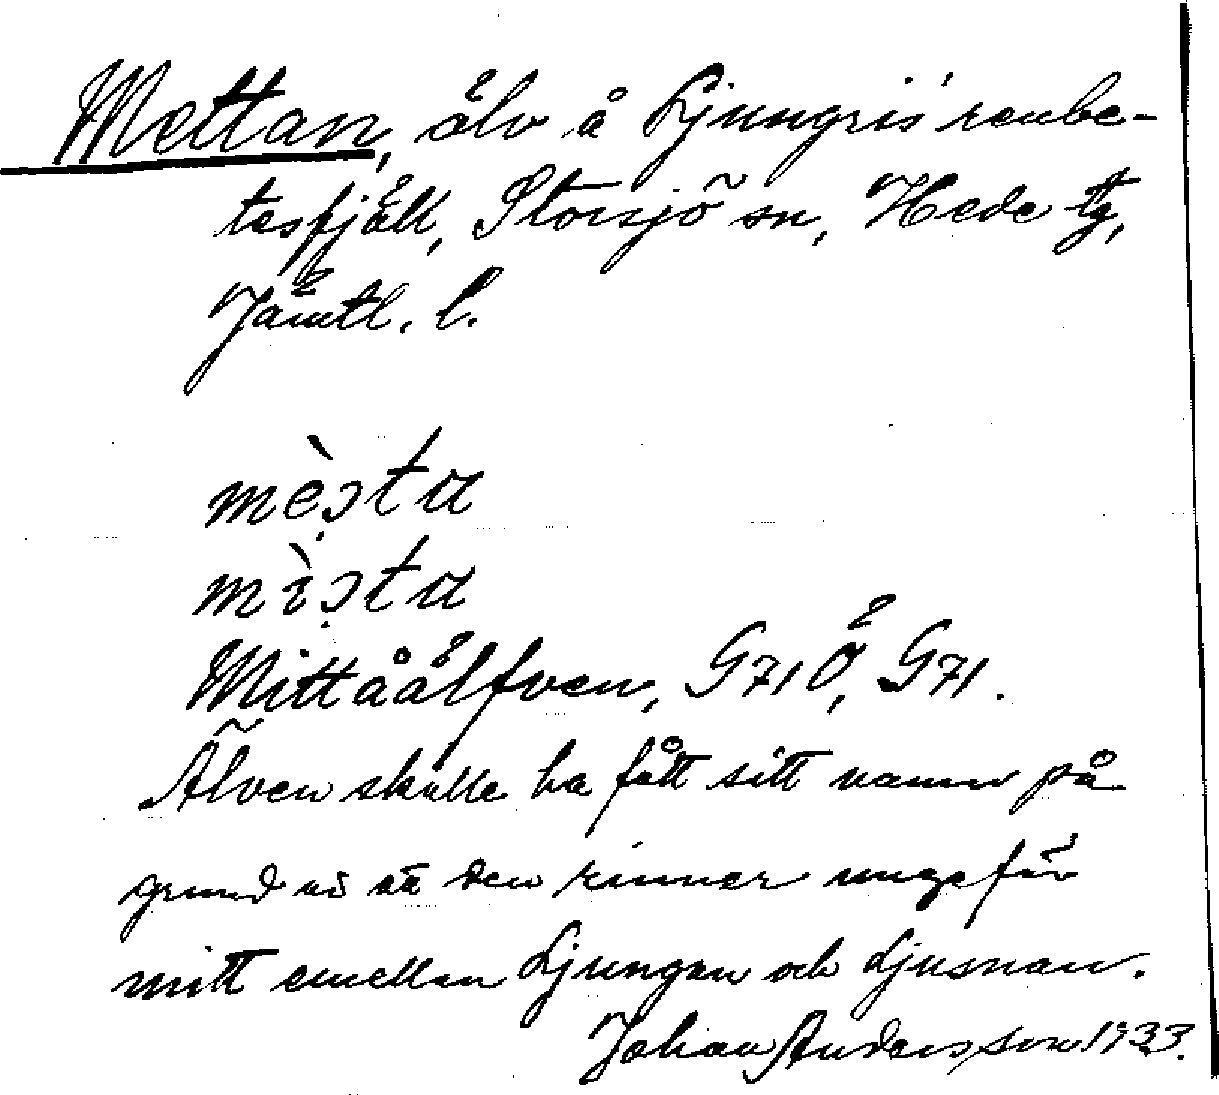 Mettan, älv å Ljungris' renbe-
tesfjäll, Storsjö sn, Hede tg,
Jämtl. l.
mèta
mìta
Mittåälfven, G71Ö, G71.
Älven skulle ha fått sitt namn på
grund av att den rinner ungefär
mitt emellan Ljungan och Ljusnan.
Johan Andersson 1933.